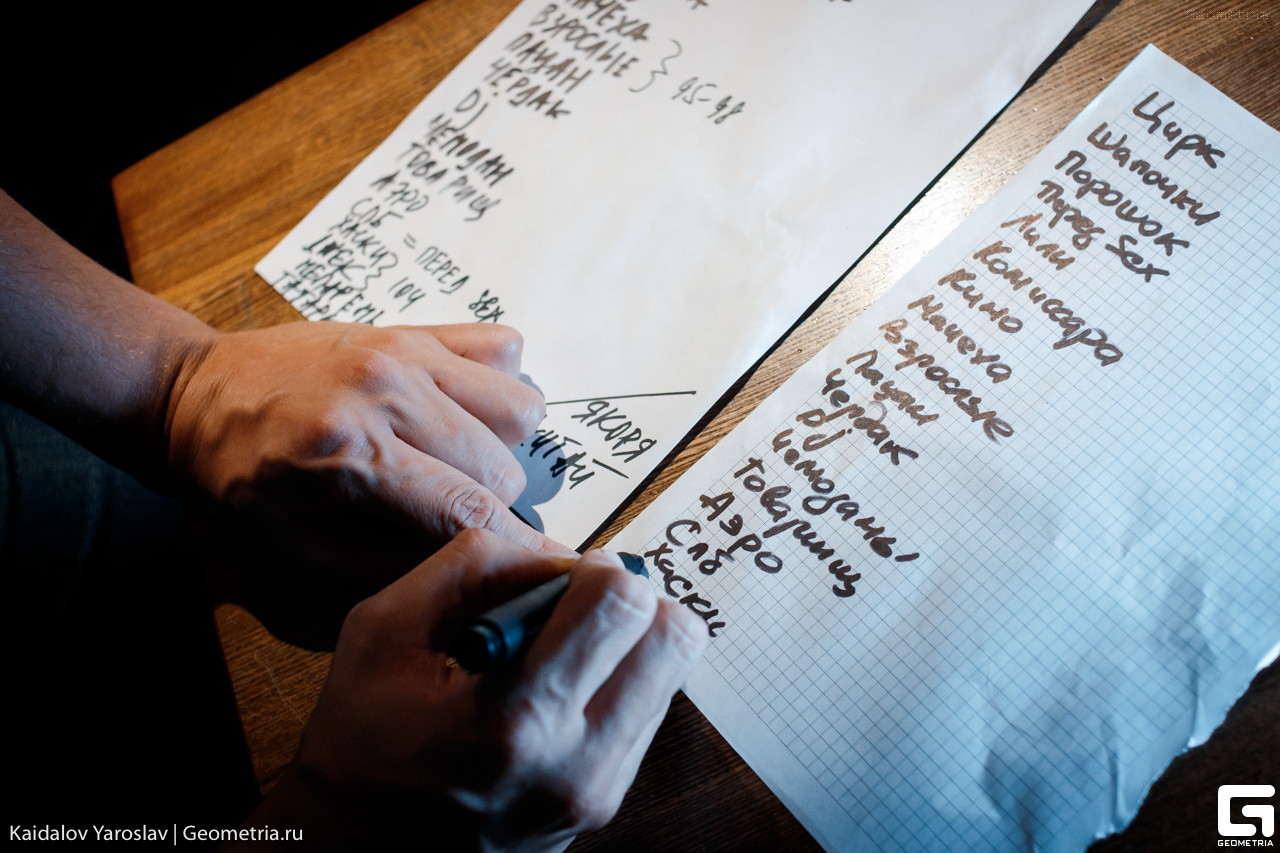 МАЧЕХА
ВЗРОСЛЫЕ } 95-98
ПАЦАН
ЧЕРДАК
Dj
ЧЕМОДАН
ТОВАРИЩ
АЭРО
СПБ = ПЕРЕД SEX
ХАСКИ } 104
ЯКОРЯ
Цирк
Шапочки
Порошок
Перед Sex
Лили
Комиссара
Кино
Мачеха
Взрослые
Пацан
Чердак
Dj
Чемоданы
Товарищ
Аэро
Спб
Хаски
Kaidalov Yaroslav | Geometria.ru
GEOMETRIA